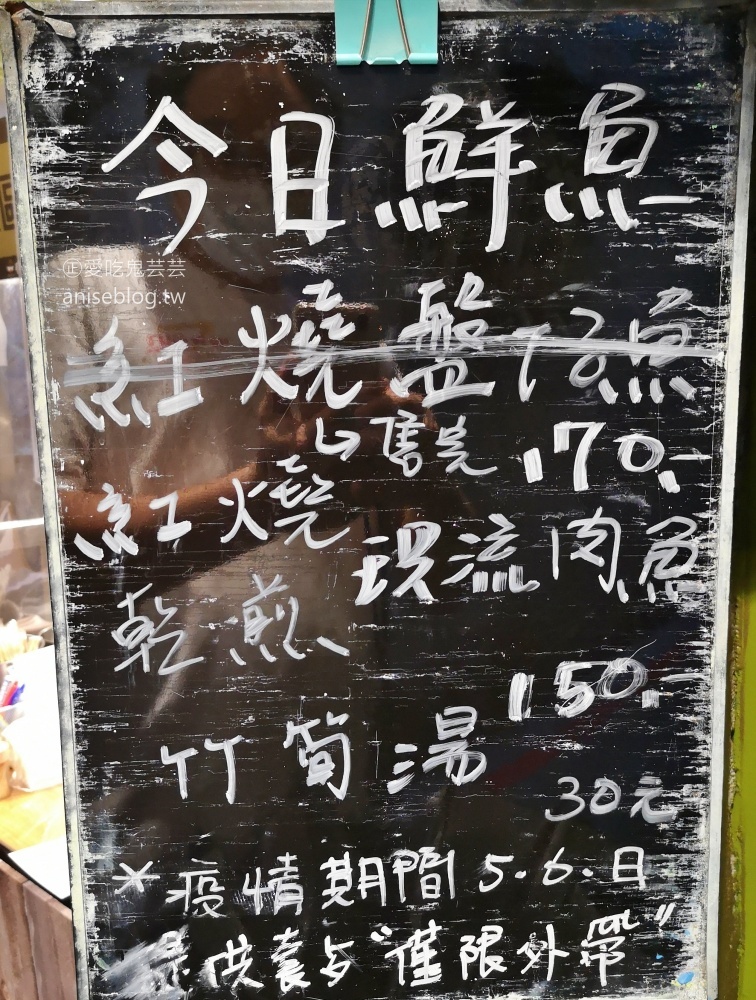 今日鮮魚
㊣愛吃鬼芸芸
aniseblog.tw
紅燒盤仔魚
售完 170.-
紅燒
現流肉魚
乾煎
150.-
竹筍湯
30元
*疫情期間5.6.日
"僅限外帶"